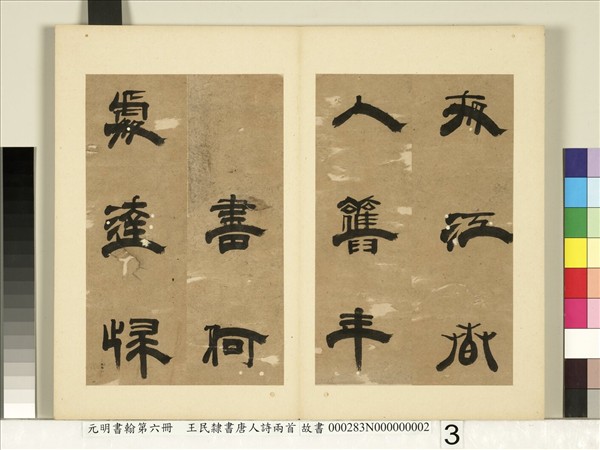 夜江春
入舊年
書何
處達歸
元明書翰第六冊 王民隸書唐人詩兩首 故書 000283N000000002
3